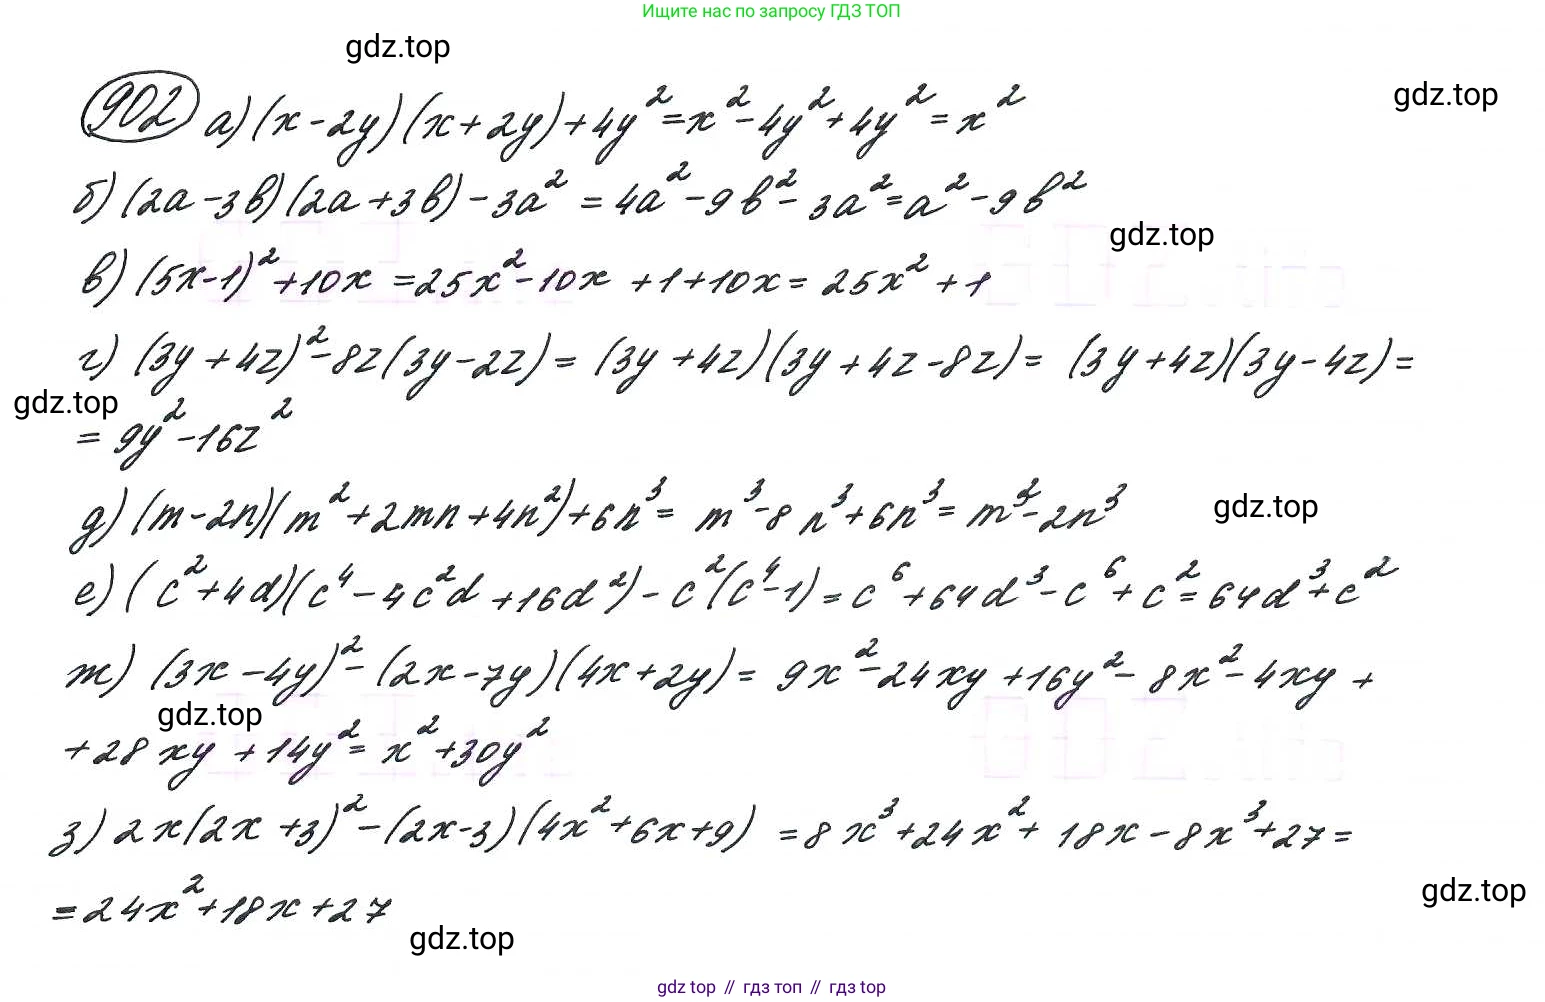 Ищите нас по запросу ГДЗ ТОП
gdz.top
gdz.top
902 а) (x-2y)(x+2y)+4y²=x²-4y²+4y²=x²
б) (2a-3b)(2a+3b)-3a²=4a²-9b²-3a²=a²-9b²
gdz.top
в) (5x-1)²+10x=25x²-10x+1+10x=25x²+1
г) (3y+4z)²-8z(3y-2z)=(3y+4z)(3y+4z-8z)=(3y+4z)(3y-4z)=
gdz.top
=9y²-16z²
д) (m-2n)(m²+2mn+4n²)+6n³=m³-8n³+6n³=m³-2n³
gdz.top
е) (c²+4d)(c⁴-4c²d+16d²)-c²(c⁴-1)=c⁶+64d³-c⁶+c²=64d³+c²
ж) (3x-4y)²-(2x-7y)(4x+2y)=9x²-24xy+16y²-8x²-4xy+
gdz.top
+28xy+14y²=x²+30y²
з) 2x(2x+3)²-(2x-3)(4x²+6x+9)=8x³+24x²+18x-8x³+27=
gdz.top
=24x²+18x+27
gdz.top
gdz top // гдз топ // гдз top